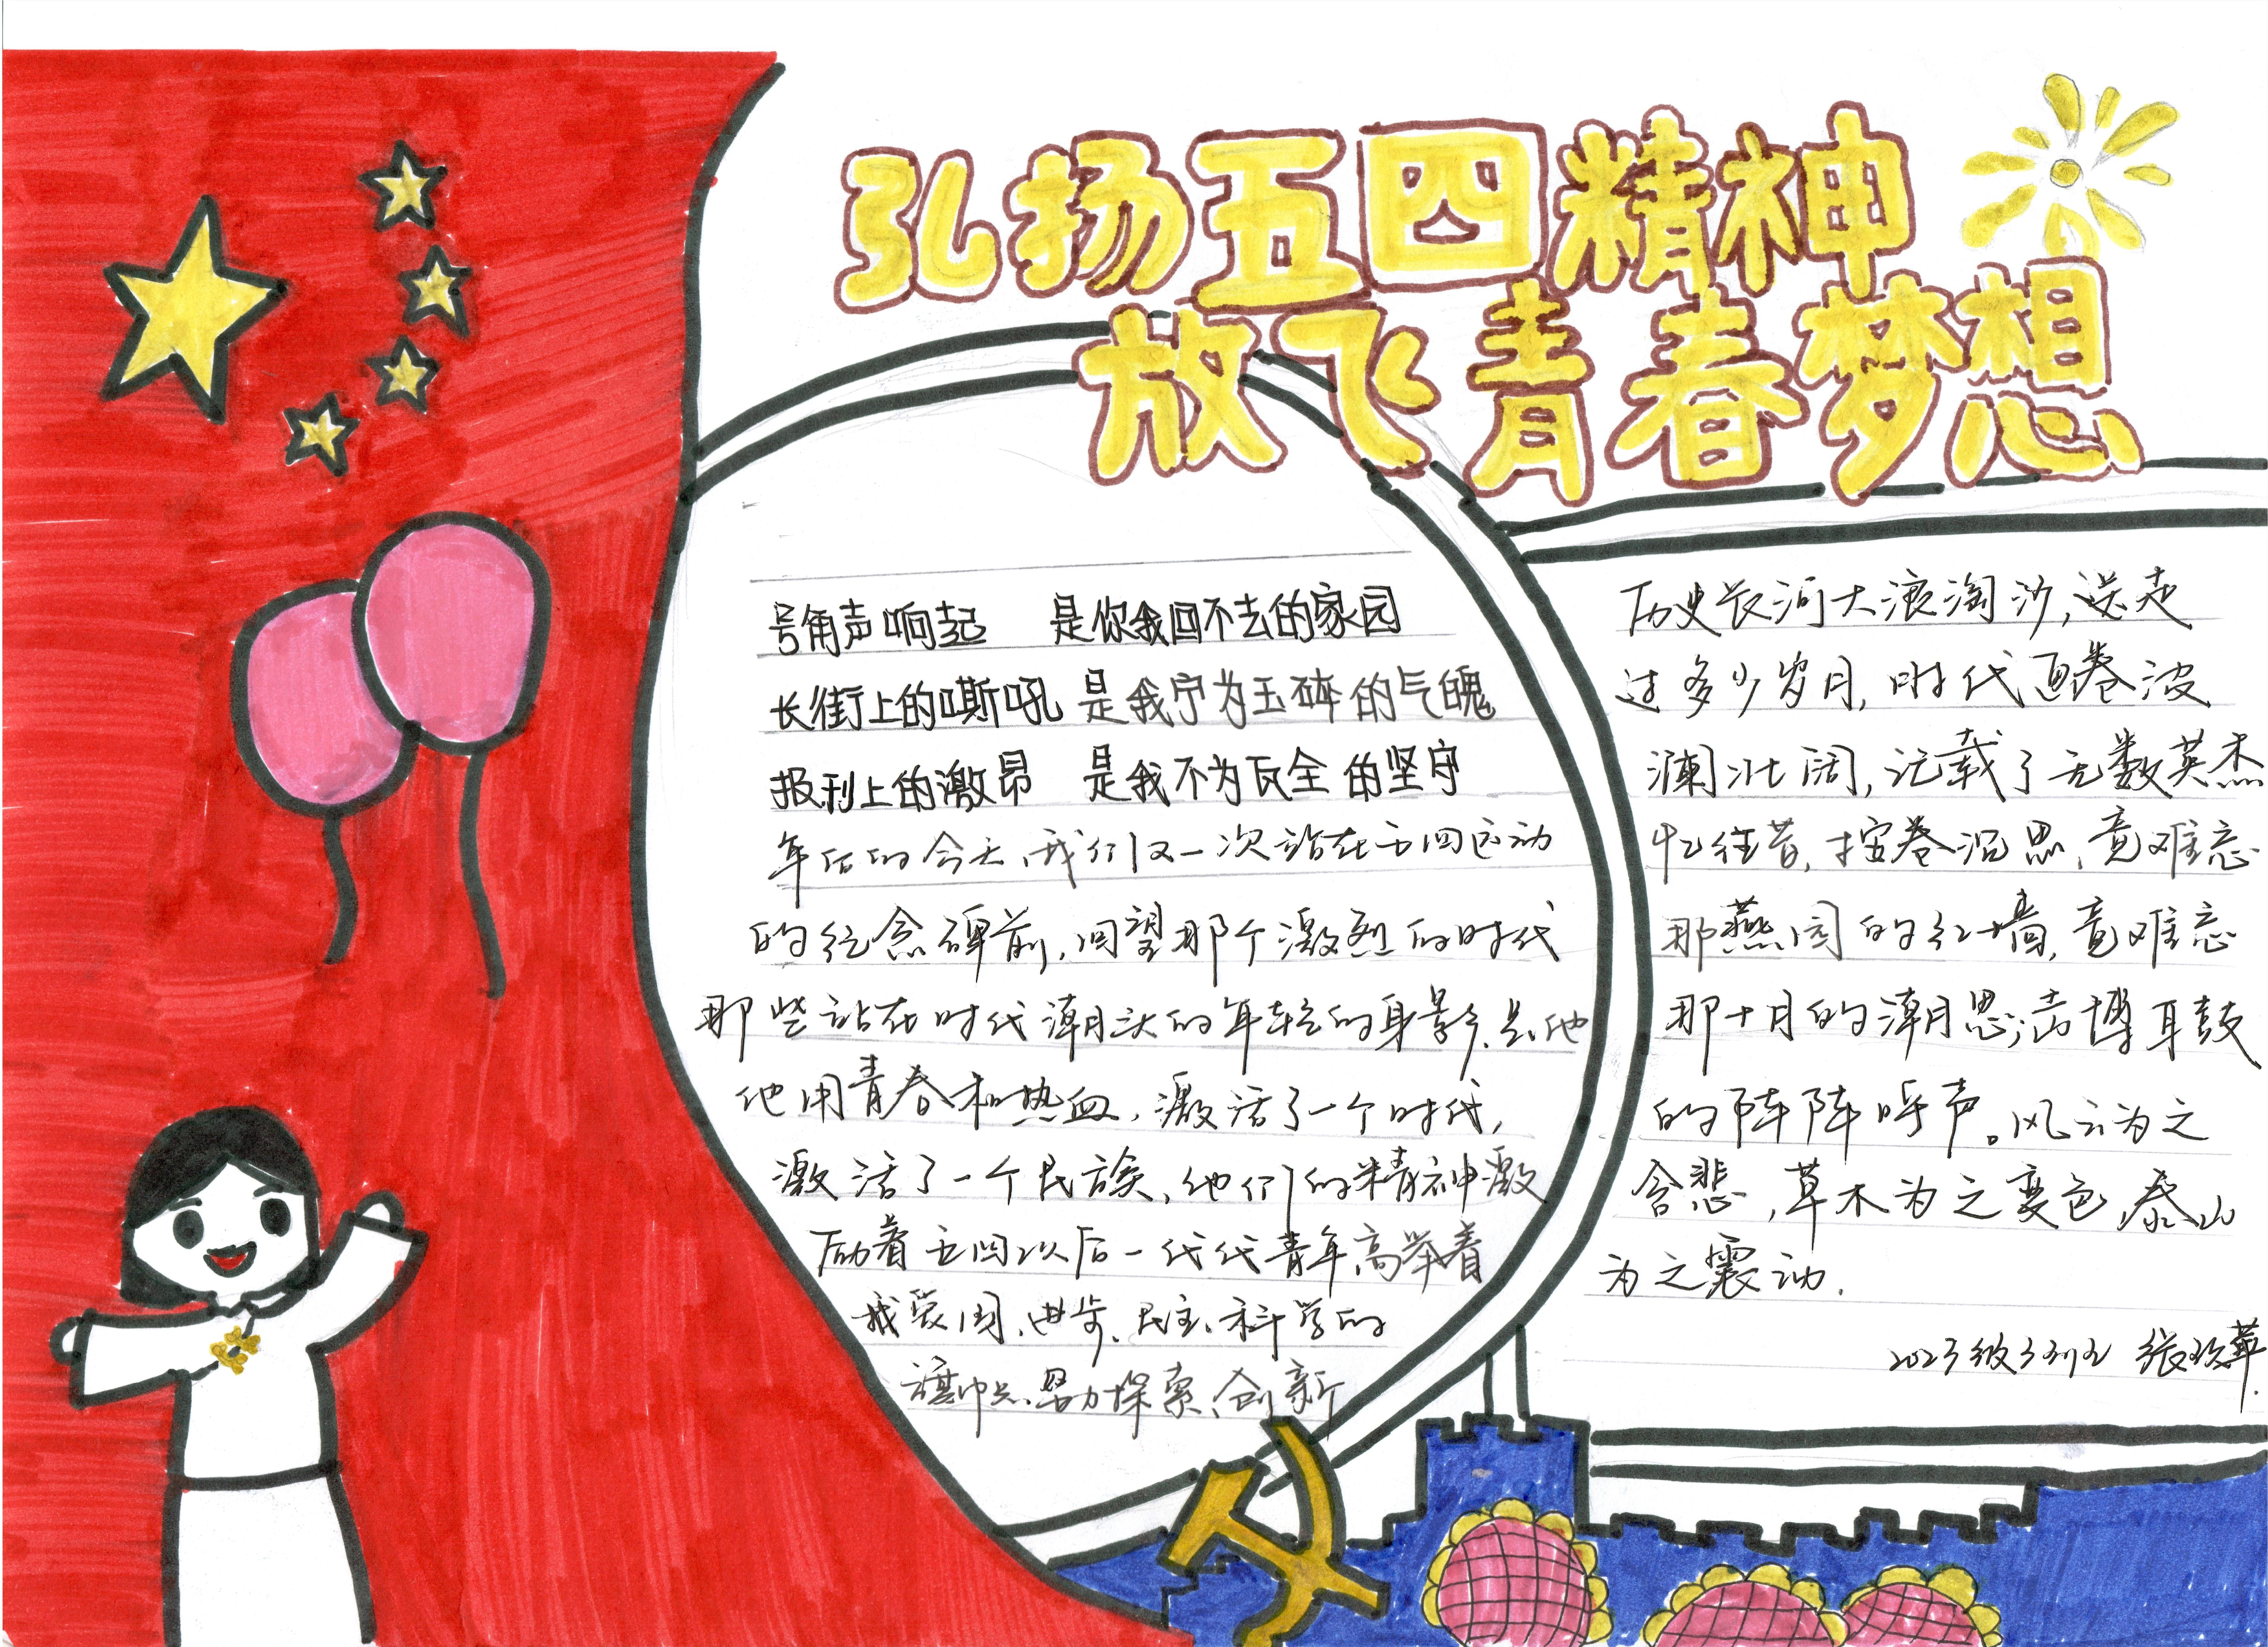 弘扬五四精神
放飞青春梦想
号角声响起 是你我回不去的家园
长街上的嘶吼 是我宁为玉碎的气魄
报刊上的激昂 是我不为瓦全的坚守
年后的今天,我们又一次站在五四运动
的纪念碑前,回望那个激烈的时代
那些站在时代潮头的年轻的身影,是他
他用青春和热血,激活了一个时代,
激活了一个民族,他们的精神激
励着五四以后一代代青年高举着
爱国、进步、民主、科学的
旗帜 努力探索、创新
历史长河大浪淘沙,送走
过多少岁月,时代画卷波
澜壮阔,记载了无数英杰
忆往昔,按卷沉思,竟难忘
那燕园的红墙,竟难忘
那十月的潮思,声博耳鼓
的阵阵呼声。风云为之
含悲,草木为之变色,泰山
为之震动.
2023级 张